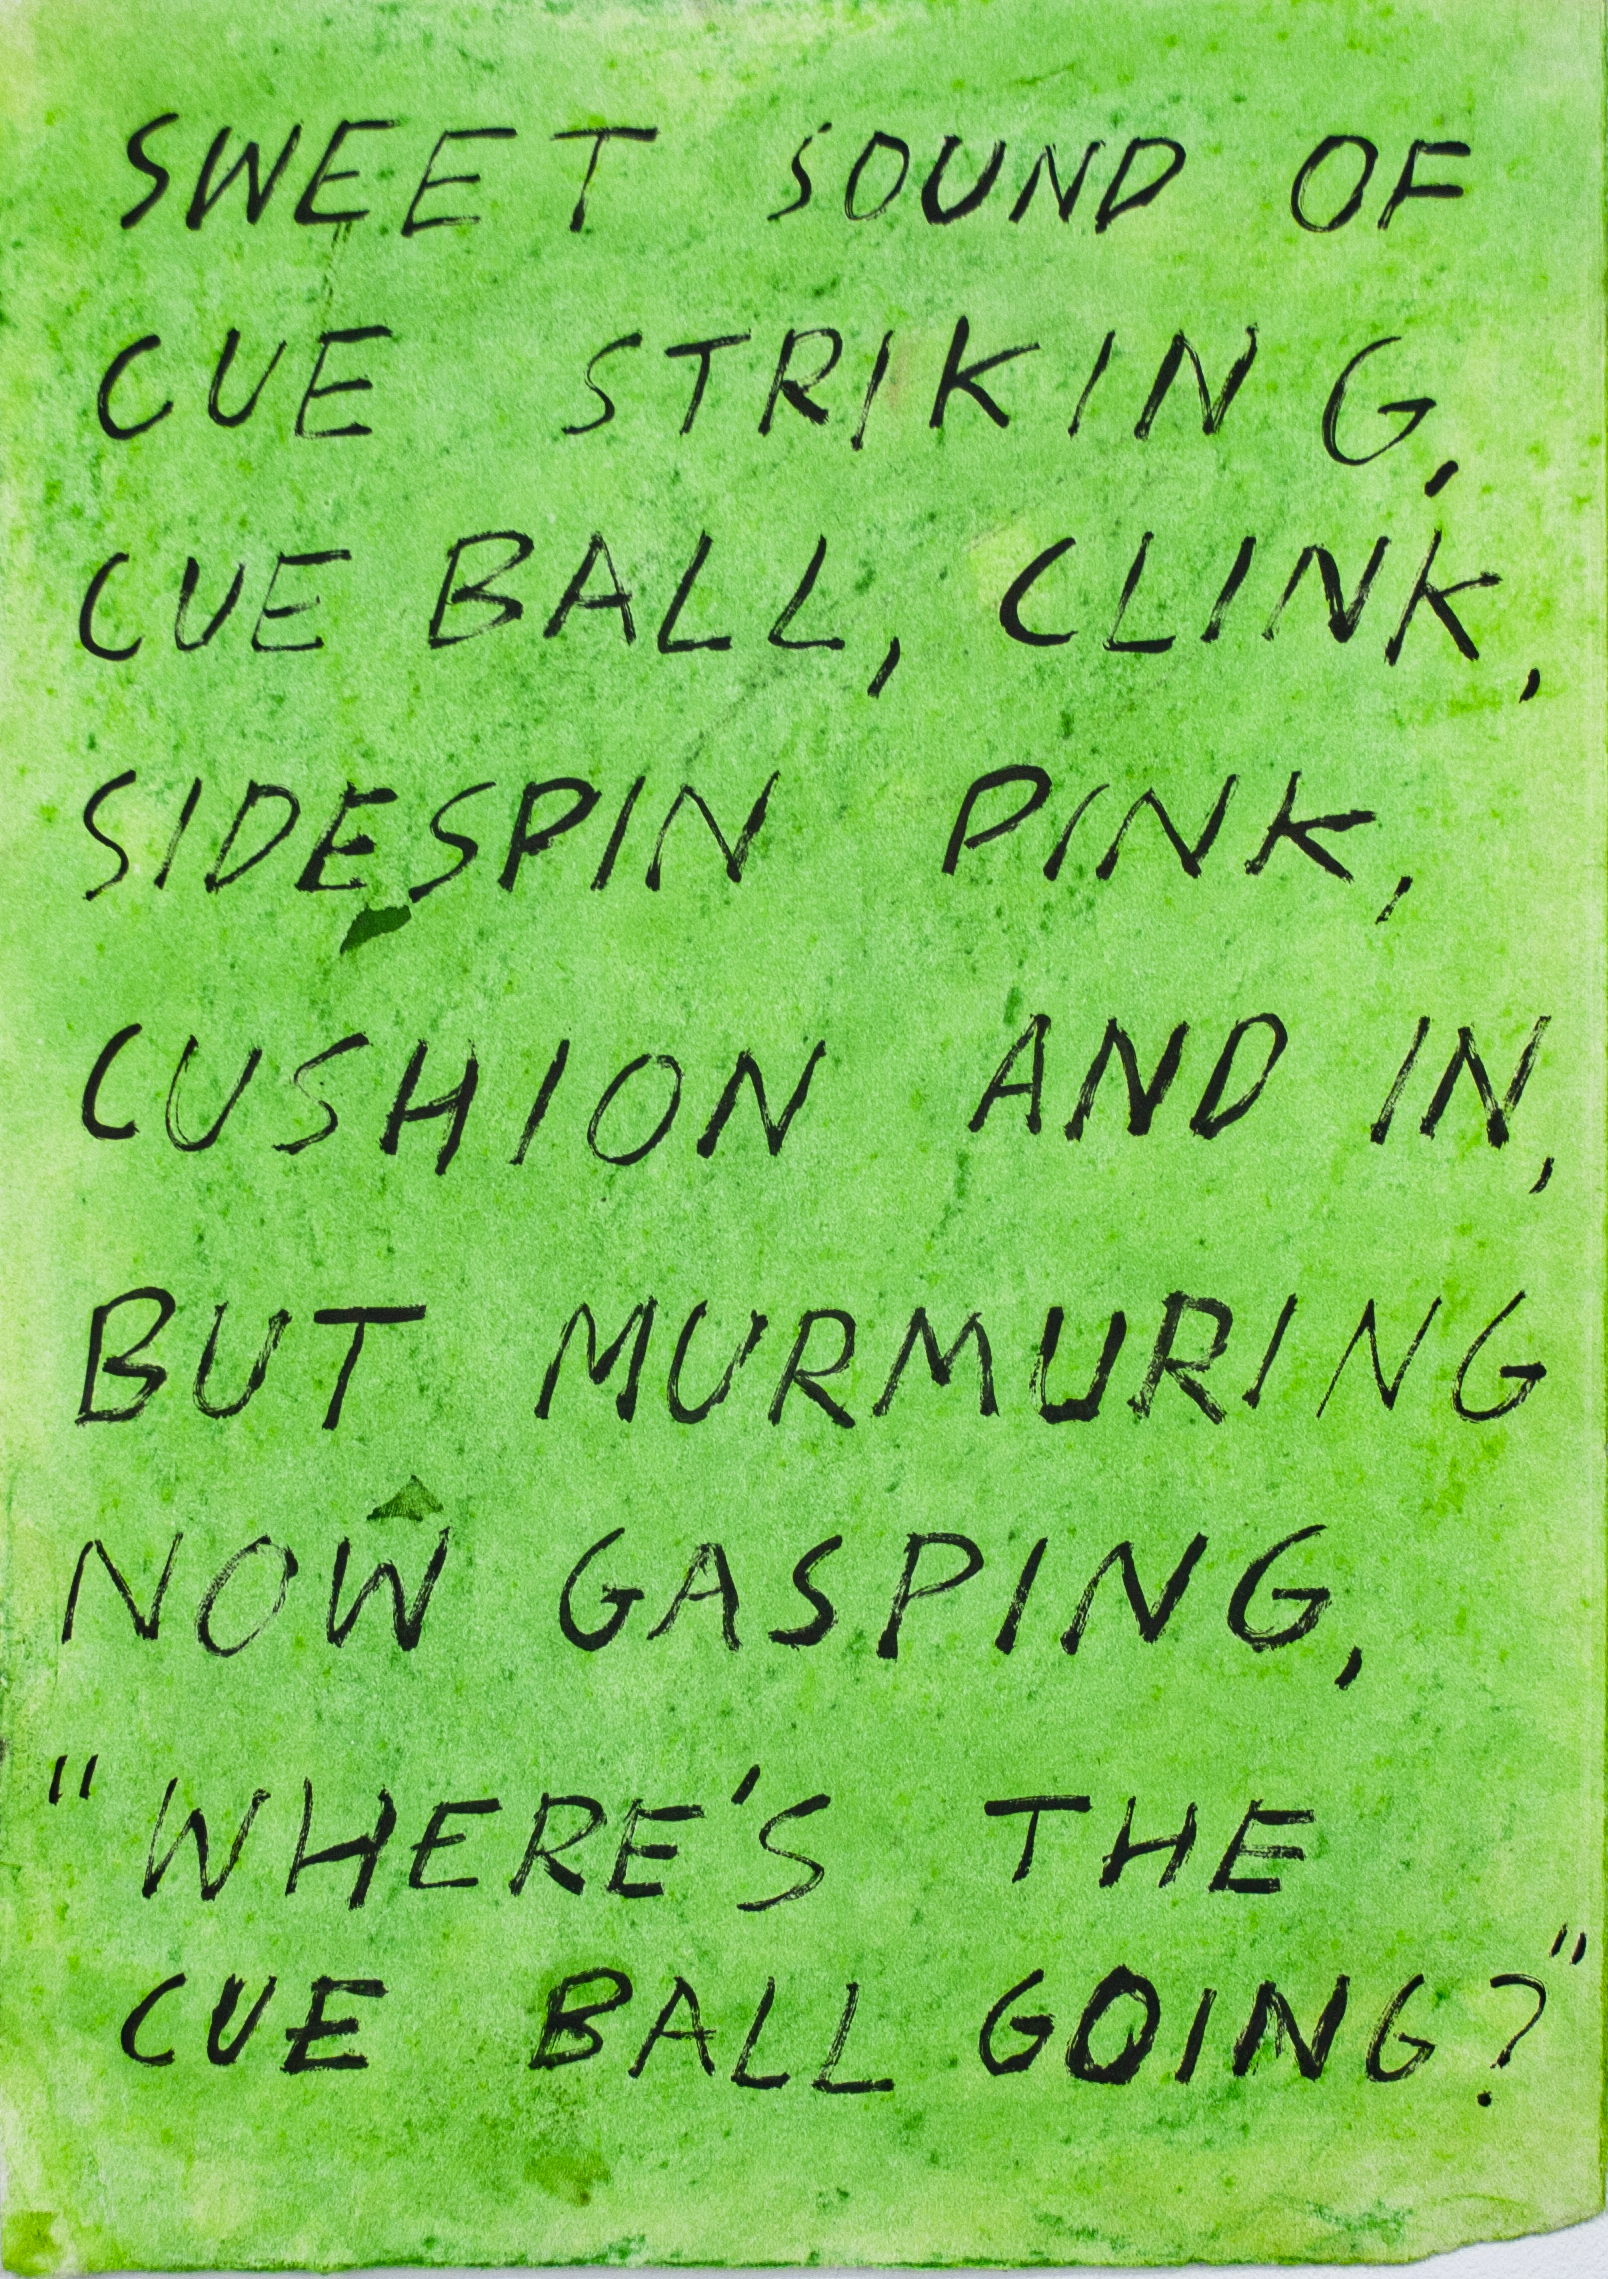 SWEET SOUND OF
CUE STRIKING,
CUE BALL, CLINK,
SIDESPIN PINK,
CUSHION AND IN,
BUT MURMURING
NOW GASPING,
"WHERE'S THE
CUE BALL GOING?"